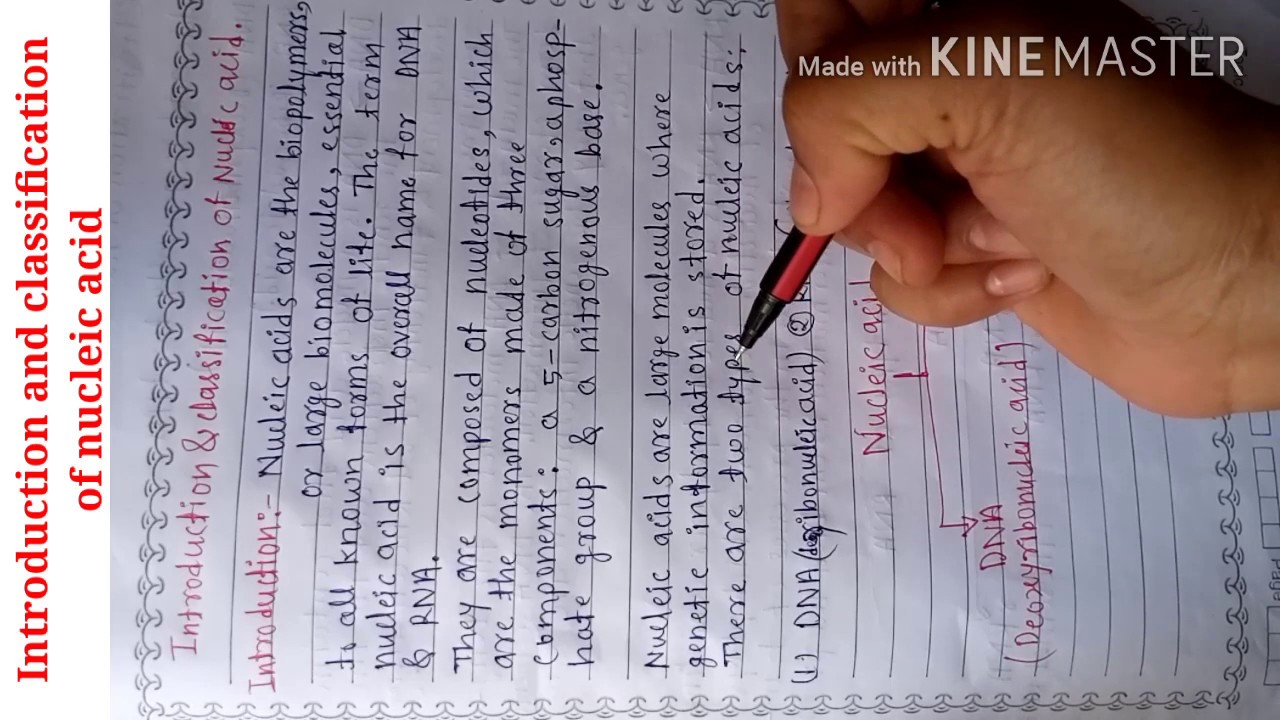 Introduction and classification
of nucleic acid
Made with KINEMASTER
Introduction & classification of Nucleic acid.
Introduction:- Nucleic acids are the biopolymers,
or large biomolecules, essential
to all known forms of life. The term
nucleic acid is the overall name for DNA
& RNA.
They are composed of nucleotides, which
are the monomers made of three
components: a 5-carbon sugar, a phosp-
hate group & a nitrogenous base.
Nucleic acids are large molecules where
genetic information is stored.
There are two types of nucleic acids:
(1) DNA (deoxyribonucleic acid) ②
Nucleic acid
DNA
(Deoxyribonucleic acid)